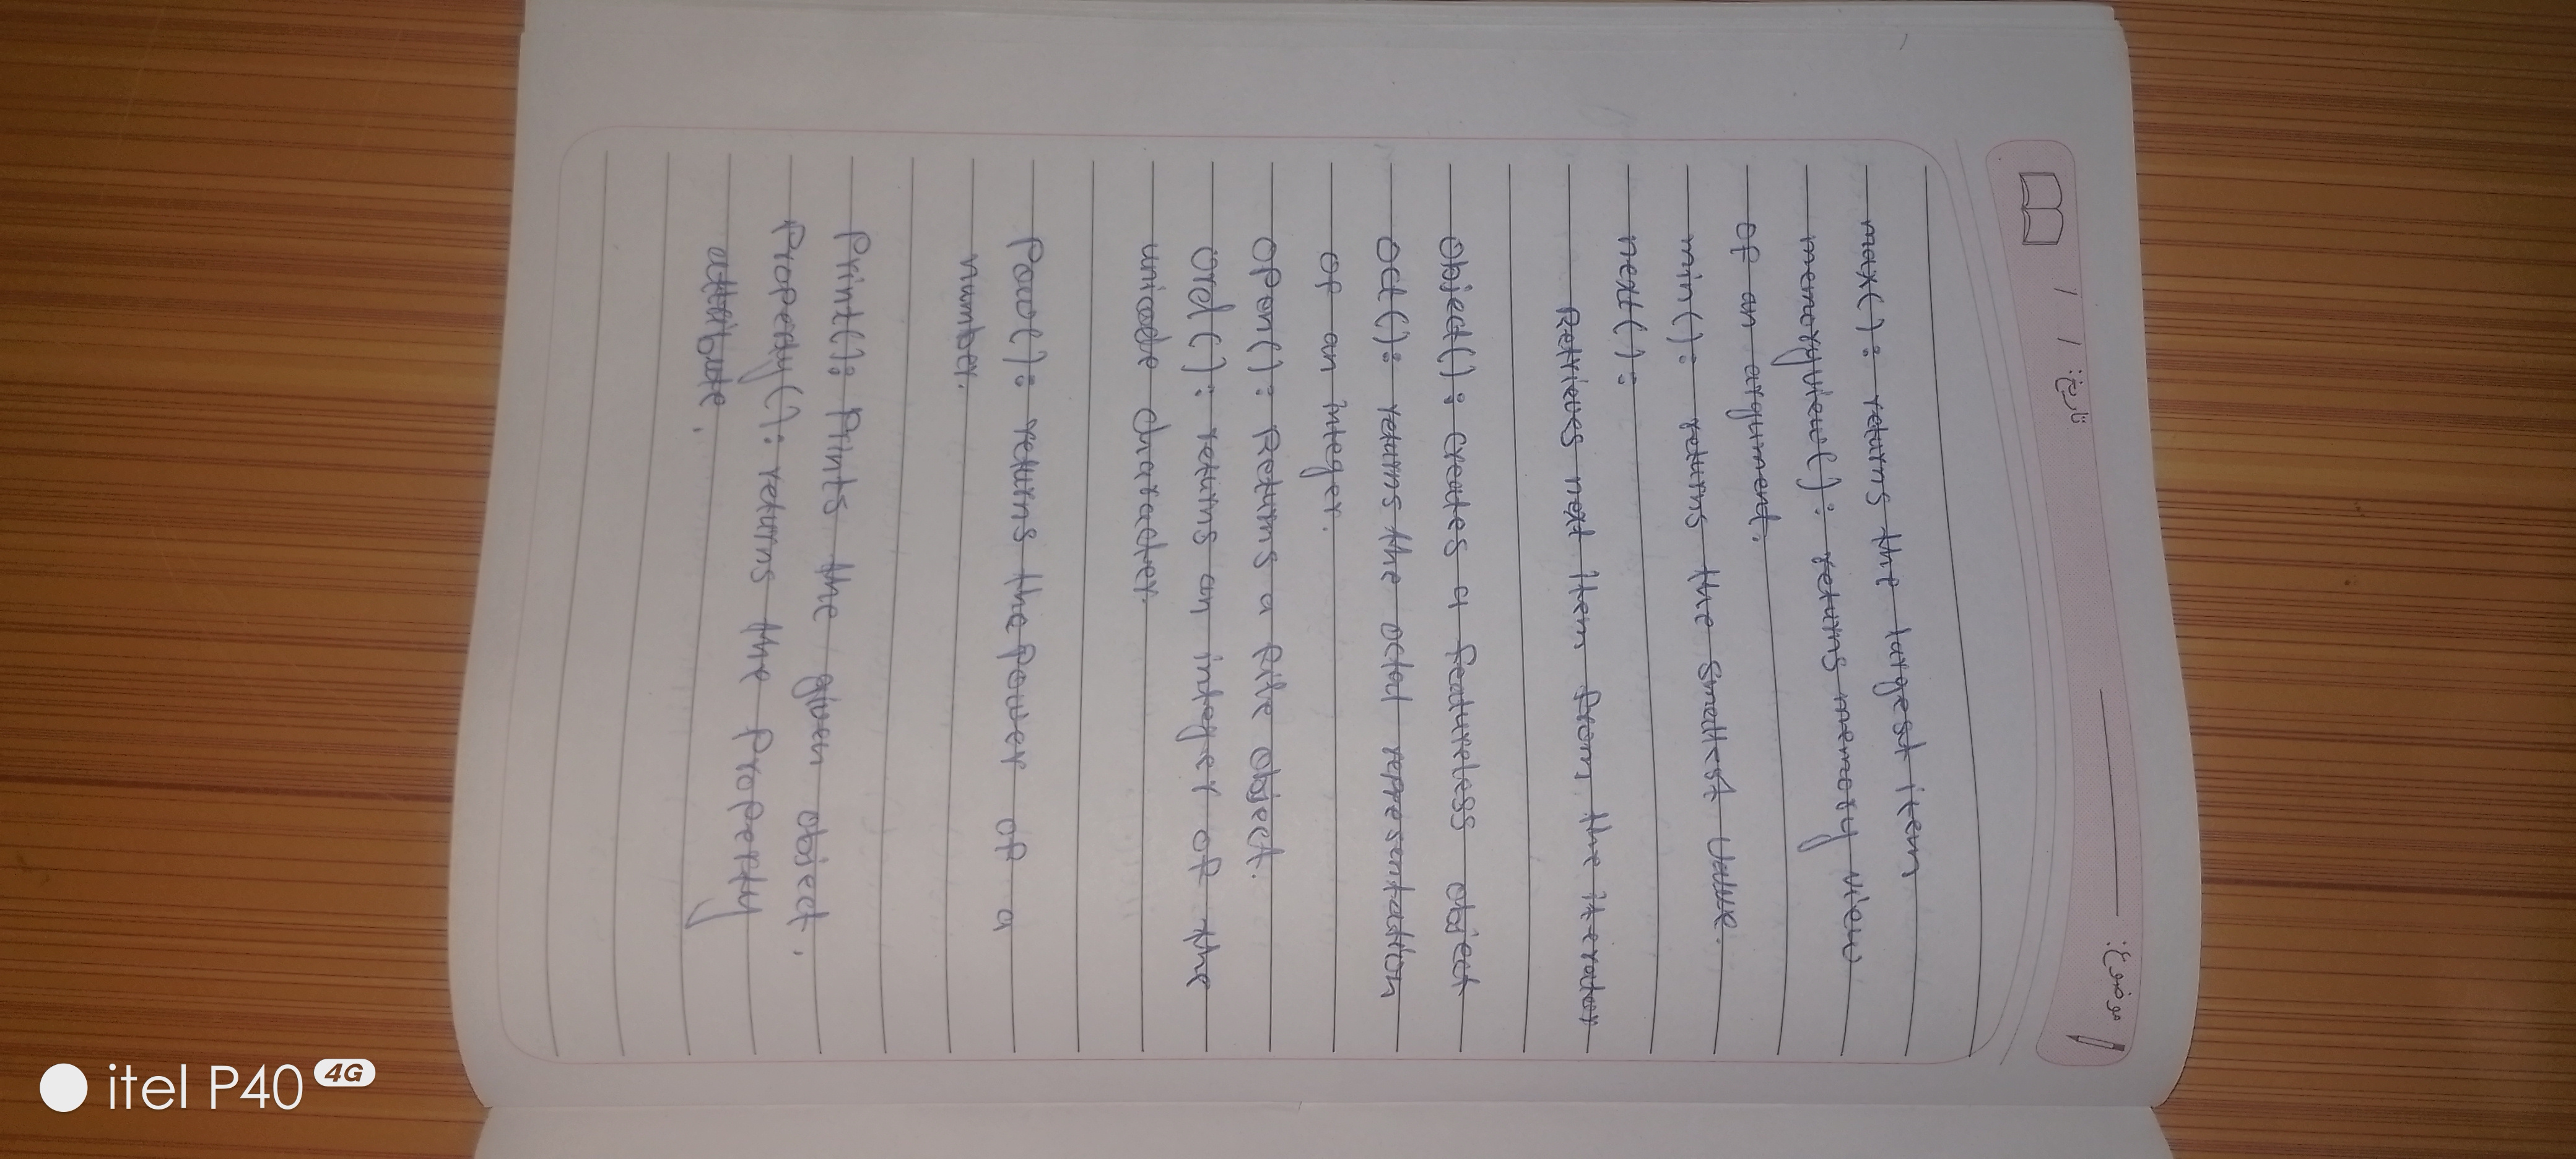 موضوع:
تاریخ: / /
max(): returns the largest item
memoryview(): returns memory view
of an argument.
min(): returns the smallest value.
next():
Retrieves next item from the iterator
object(): creates a featureless object
oct(): returns the octal representation
of an integer.
open(): Returns a file object.
ord(): returns an integer of the
unicode character.
pow(): returns the power of a
number.
print(): Prints the given object.
property(): returns the property
attribute.
itel P40 4G